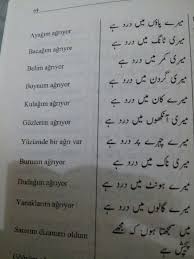 64
Ayağım ağrıyor میرے پاؤں میں درد ہے
Bacağım ağrıyor میری ٹانگ میں درد ہے
Belim ağrıyor میری کمر میں درد ہے
Boynum ağrıyor میری گردن میں درد ہے
Kulağım ağrıyor میرے کان میں درد ہے
Gözlerim ağrıyor میری آنکھوں میں درد ہے
Yüzümde bir ağrı var میرے چہرے پر درد ہے
Burnum ağrıyor میری ناک میں درد ہے
Dudağım ağrıyor میرے ہونٹ میں درد ہے
Yanaklarım ağrıyor میرے گالوں میں درد ہے
Sanırım dizanteri oldum میں سمجھتا ہوں کہ مجھے
پیچش ہے